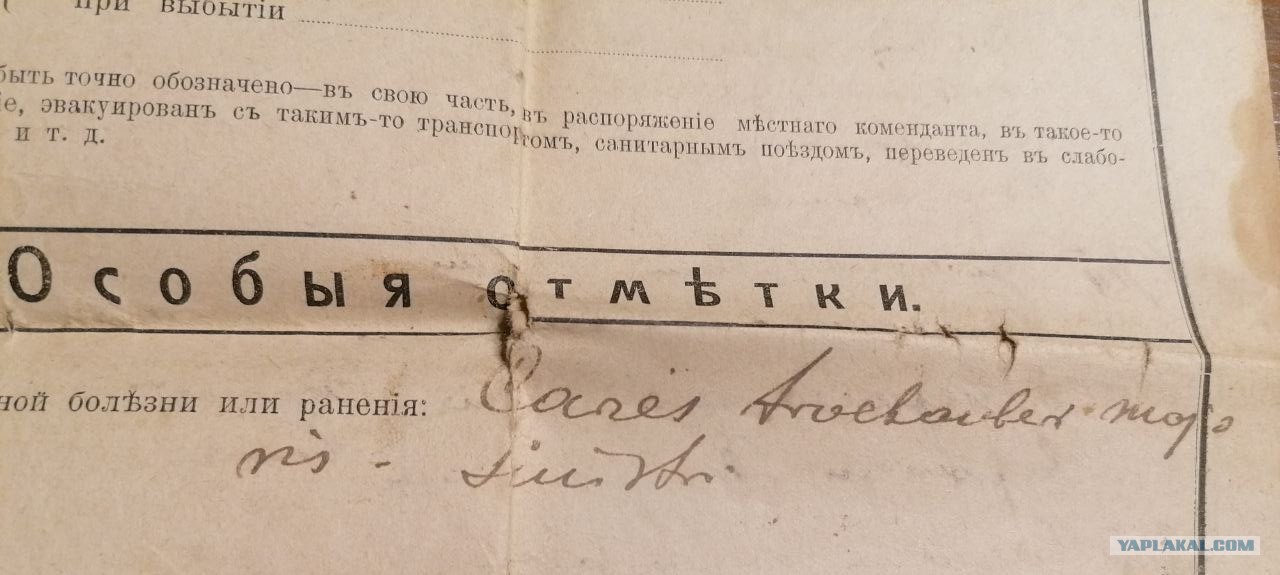 при выбытіи
быть точно обозначено—въ свою часть, въ распоряженіе мѣстнаго коменданта, въ такое-то
іе, эвакуированъ съ такимъ-то транспортомъ, санитарнымъ поѣздомъ, переведенъ въ слабо-
и т. д.
Особыя отмѣтки.
ной болѣзни или раненія: Caries trochanter. majo
ris - sinistri.
YAPLAKAL.COM